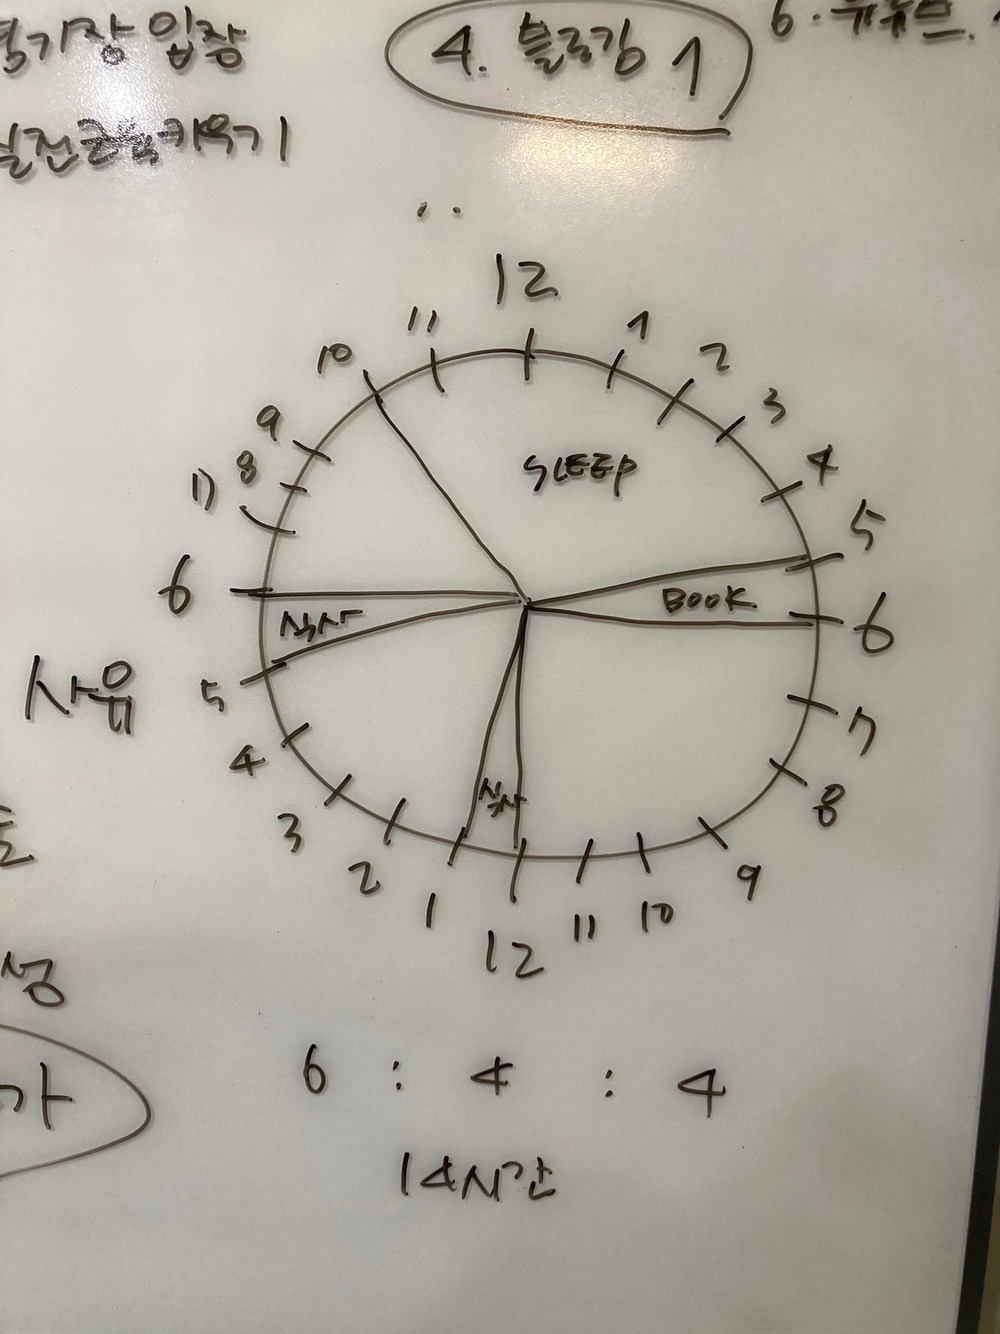 4. 블로깅 1
6. 유튜브.
장 입장
실전근육키우기
12
11
1
10
2
9
3
8
4
7
SLEEP
5
6
BOOK.
6
식사
사유
5
7
4
식사
8
3
9
2
10
1
11
12
성
가
6 : 4 : 4
14시간